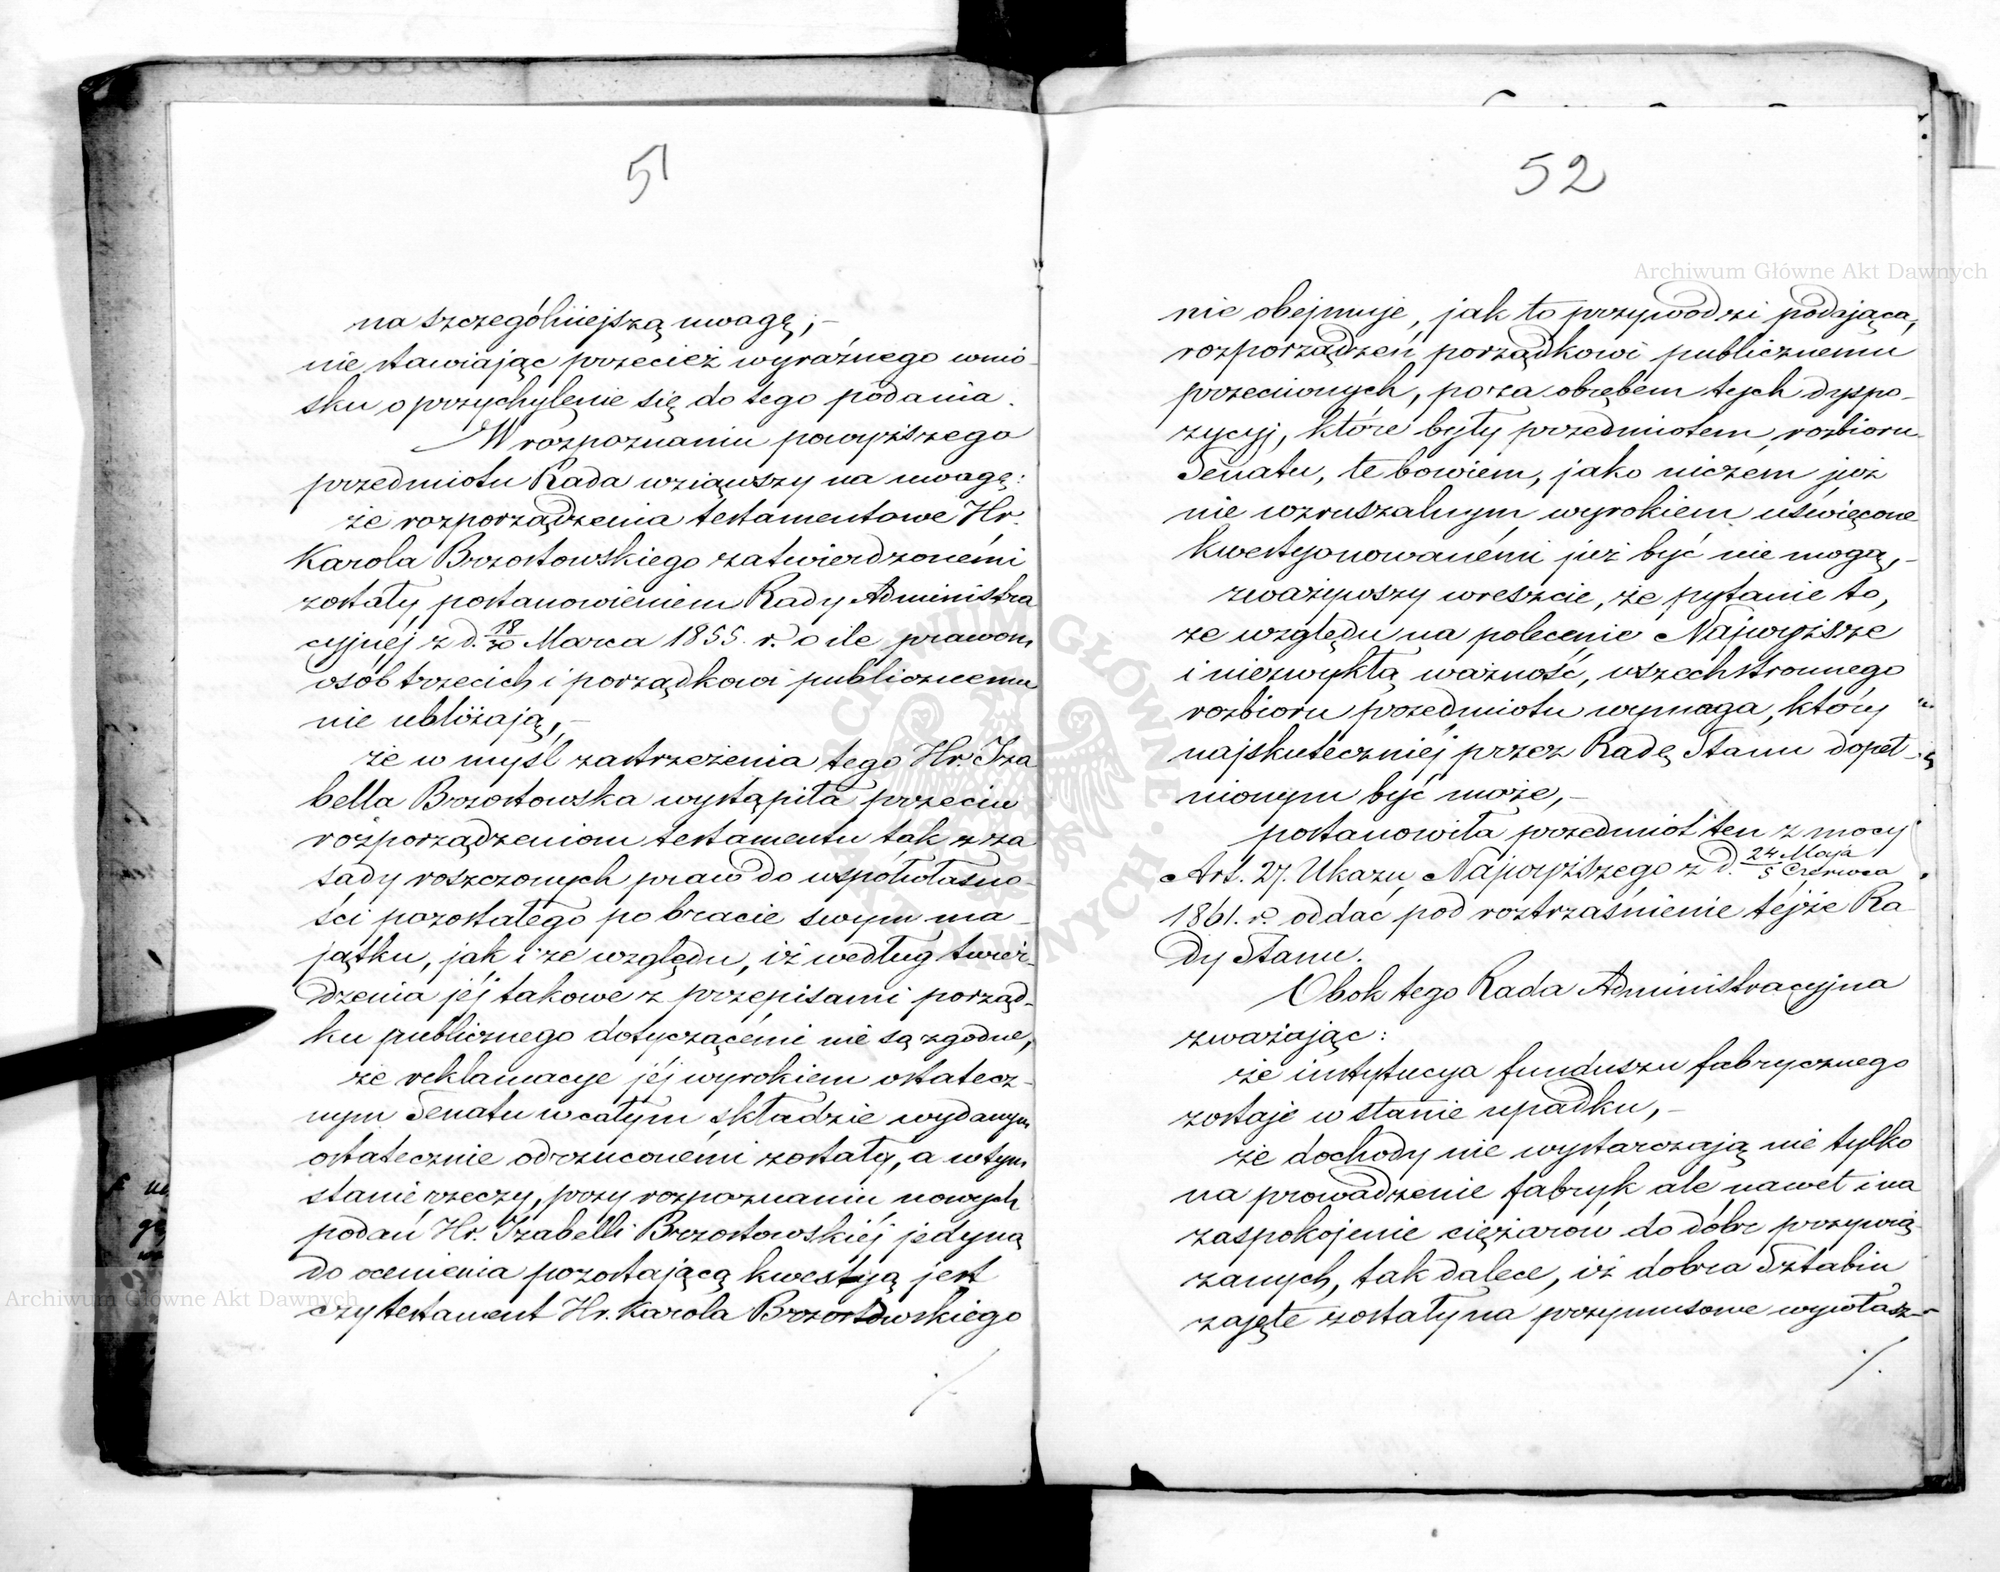 51
na szczególniejszą uwagę,—
nie stawiając przecież wyraźnego wnio-
sku o przychylenie się do tego podania.
W rozpoznaniu powyższego
przedmiotu Rada wziąwszy na uwagę:
że rozporządzenia testamentowe Hr.
Karola Brzostowskiego zatwierdzonémi
zostały postanowieniem Rady Administra
cyjnéj z d. 18/30 Marca 1855. r. o ile prawom
osób trzecich i porządkowi publicznemu
nie ubliżają,—
że w myśl zastrzeżenia tego Hr. Iza
bella Brzostowska wystąpiła przeciw
rozporządzeniom testamentu tak z za
sady roszczonych praw do współwłasno-
ści pozostałego po bracie swym ma-
jątku, jak i ze względu, iż według twier-
dzenia jéj takowe z przepisami porząd-
ku publicznego dotyczącémi nie są zgodne,
że reklamacye jéj wyrokiem ostatecz-
nym Senatu w całym składzie wydanym
ostatecznie odrzuconémi zostały, a w tym
stanie rzeczy, przy rozpoznaniu nowych
podań Hr. Izabelli Brzostowskiéj jedyną
do ocenienia pozostającą kwestyą jest
czy testament Hr. Karola Brzostowskiego
./.
52
nie obejmuje, jak to przywodzi podająca,
rozporządzeń porządkowi publicznemu
przeciwnych, poza obrębem tych dyspo-
zycyj, które były przedmiotem rozbioru
Senatu, te bowiem, jako niczém już
nie wzruszalnym wyrokiem uświęcone
kwestyonowanémi już być nie mogą,—
zważywszy wreszcie, że pytanie to,
ze względu na polecenie Najwyższe
i niezwykłą ważność, wszechstronnego
rozbioru przedmiotu wymaga, który
najskuteczniéj przez Radę Stanu dopeł-
nionym być może,—
postanowiła przedmiot ten z mocy
Art. 27. Ukazu Najwyższego z d. 24 Maja/5 Czerwca
1861. r. oddać pod roztrząśnienie téjże Ra
dy Stanu.
Obok tego Rada Administracyjna
zważając:
że instytucya funduszu fabrycznego
zostaje w stanie upadku,—
że dochody nie wystarczają nie tylko
na prowadzenie fabryk ale nawet i na
zaspokojenie ciężarów do dóbr przywią-
zanych, tak dalece, iż dobra Sztabin
zajęte zostały na przymusowe wywłasz-
./.
Archiwum Główne Akt Dawnych
Archiwum Główne Akt Dawnych
ARCHIWUM GŁÓWNE AKT DAWNYCH